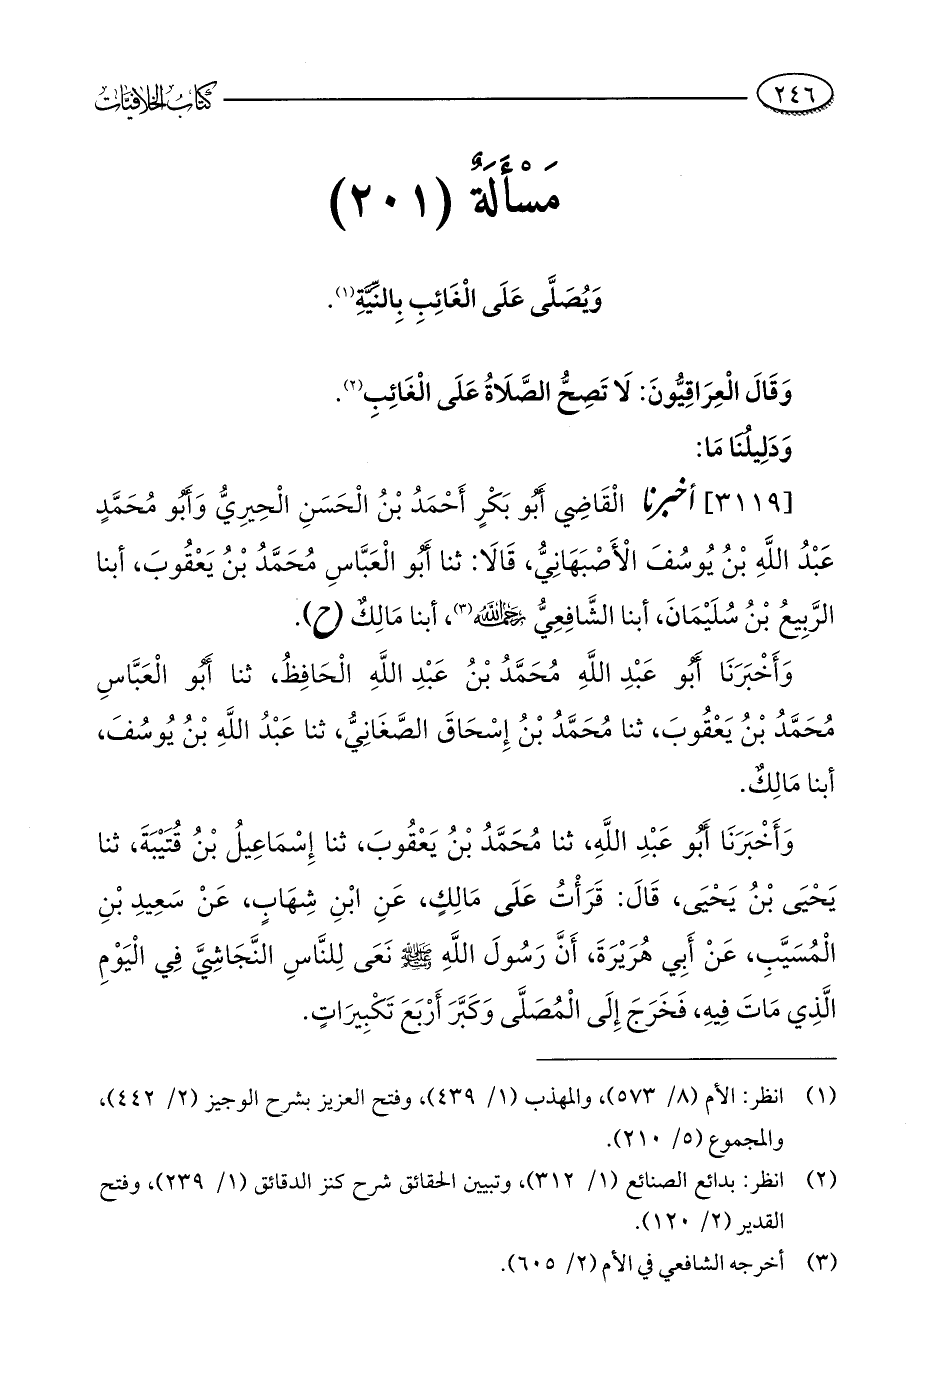 ٢٤٦ كتاب الخلافيات
مَسْأَلَةٌ (٢٠١)
وَيُصَلَّى عَلَى الْغَائِبِ بِالنِّيَّةِ(١).
وَقَالَ الْعِرَاقِيُّونَ: لَا تَصِحُّ الصَّلَاةُ عَلَى الْغَائِبِ(٢).
وَدَلِيلُنَا مَا:
[٣١١٩] أخبرنا الْقَاضِي أَبُو بَكْرٍ أَحْمَدُ بْنُ الْحَسَنِ الْحِيرِيُّ وَأَبُو مُحَمَّدٍ
عَبْدُ اللَّهِ بْنُ يُوسُفَ الْأَصْبَهَانِيُّ، قَالَا: ثنا أَبُو الْعَبَّاسِ مُحَمَّدُ بْنُ يَعْقُوبَ، أبنا
الرَّبِيعُ بْنُ سُلَيْمَانَ، أبنا الشَّافِعِيُّ رحمه الله(٣)، أبنا مَالِكٌ (ح).
وَأَخْبَرَنَا أَبُو عَبْدِ اللَّهِ مُحَمَّدُ بْنُ عَبْدِ اللَّهِ الْحَافِظُ، ثنا أَبُو الْعَبَّاسِ
مُحَمَّدُ بْنُ يَعْقُوبَ، ثنا مُحَمَّدُ بْنُ إِسْحَاقَ الصَّغَانِيُّ، ثنا عَبْدُ اللَّهِ بْنُ يُوسُفَ،
أبنا مَالِكٌ.
وَأَخْبَرَنَا أَبُو عَبْدِ اللَّهِ، ثنا مُحَمَّدُ بْنُ يَعْقُوبَ، ثنا إِسْمَاعِيلُ بْنُ قُتَيْبَةَ، ثنا
يَحْيَى بْنُ يَحْيَى، قَالَ: قَرَأْتُ عَلَى مَالِكٍ، عَنِ ابْنِ شِهَابٍ، عَنْ سَعِيدِ بْنِ
الْمُسَيَّبِ، عَنْ أَبِي هُرَيْرَةَ، أَنَّ رَسُولَ اللَّهِ ﷺ نَعَى لِلنَّاسِ النَّجَاشِيَّ فِي الْيَوْمِ
الَّذِي مَاتَ فِيهِ، فَخَرَجَ إِلَى الْمُصَلَّى وَكَبَّرَ أَرْبَعَ تَكْبِيرَاتٍ.
(١) انظر: الأم (٨/ ٥٧٣)، والمهذب (١/ ٤٣٩)، وفتح العزيز بشرح الوجيز (٢/ ٤٤٢)،
والمجموع (٥/ ٢١٠).
(٢) انظر: بدائع الصنائع (١/ ٣١٢)، وتبيين الحقائق شرح كنز الدقائق (١/ ٢٣٩)، وفتح
القدير (٢/ ١٢٠).
(٣) أخرجه الشافعي في الأم (٢/ ٦٠٥).